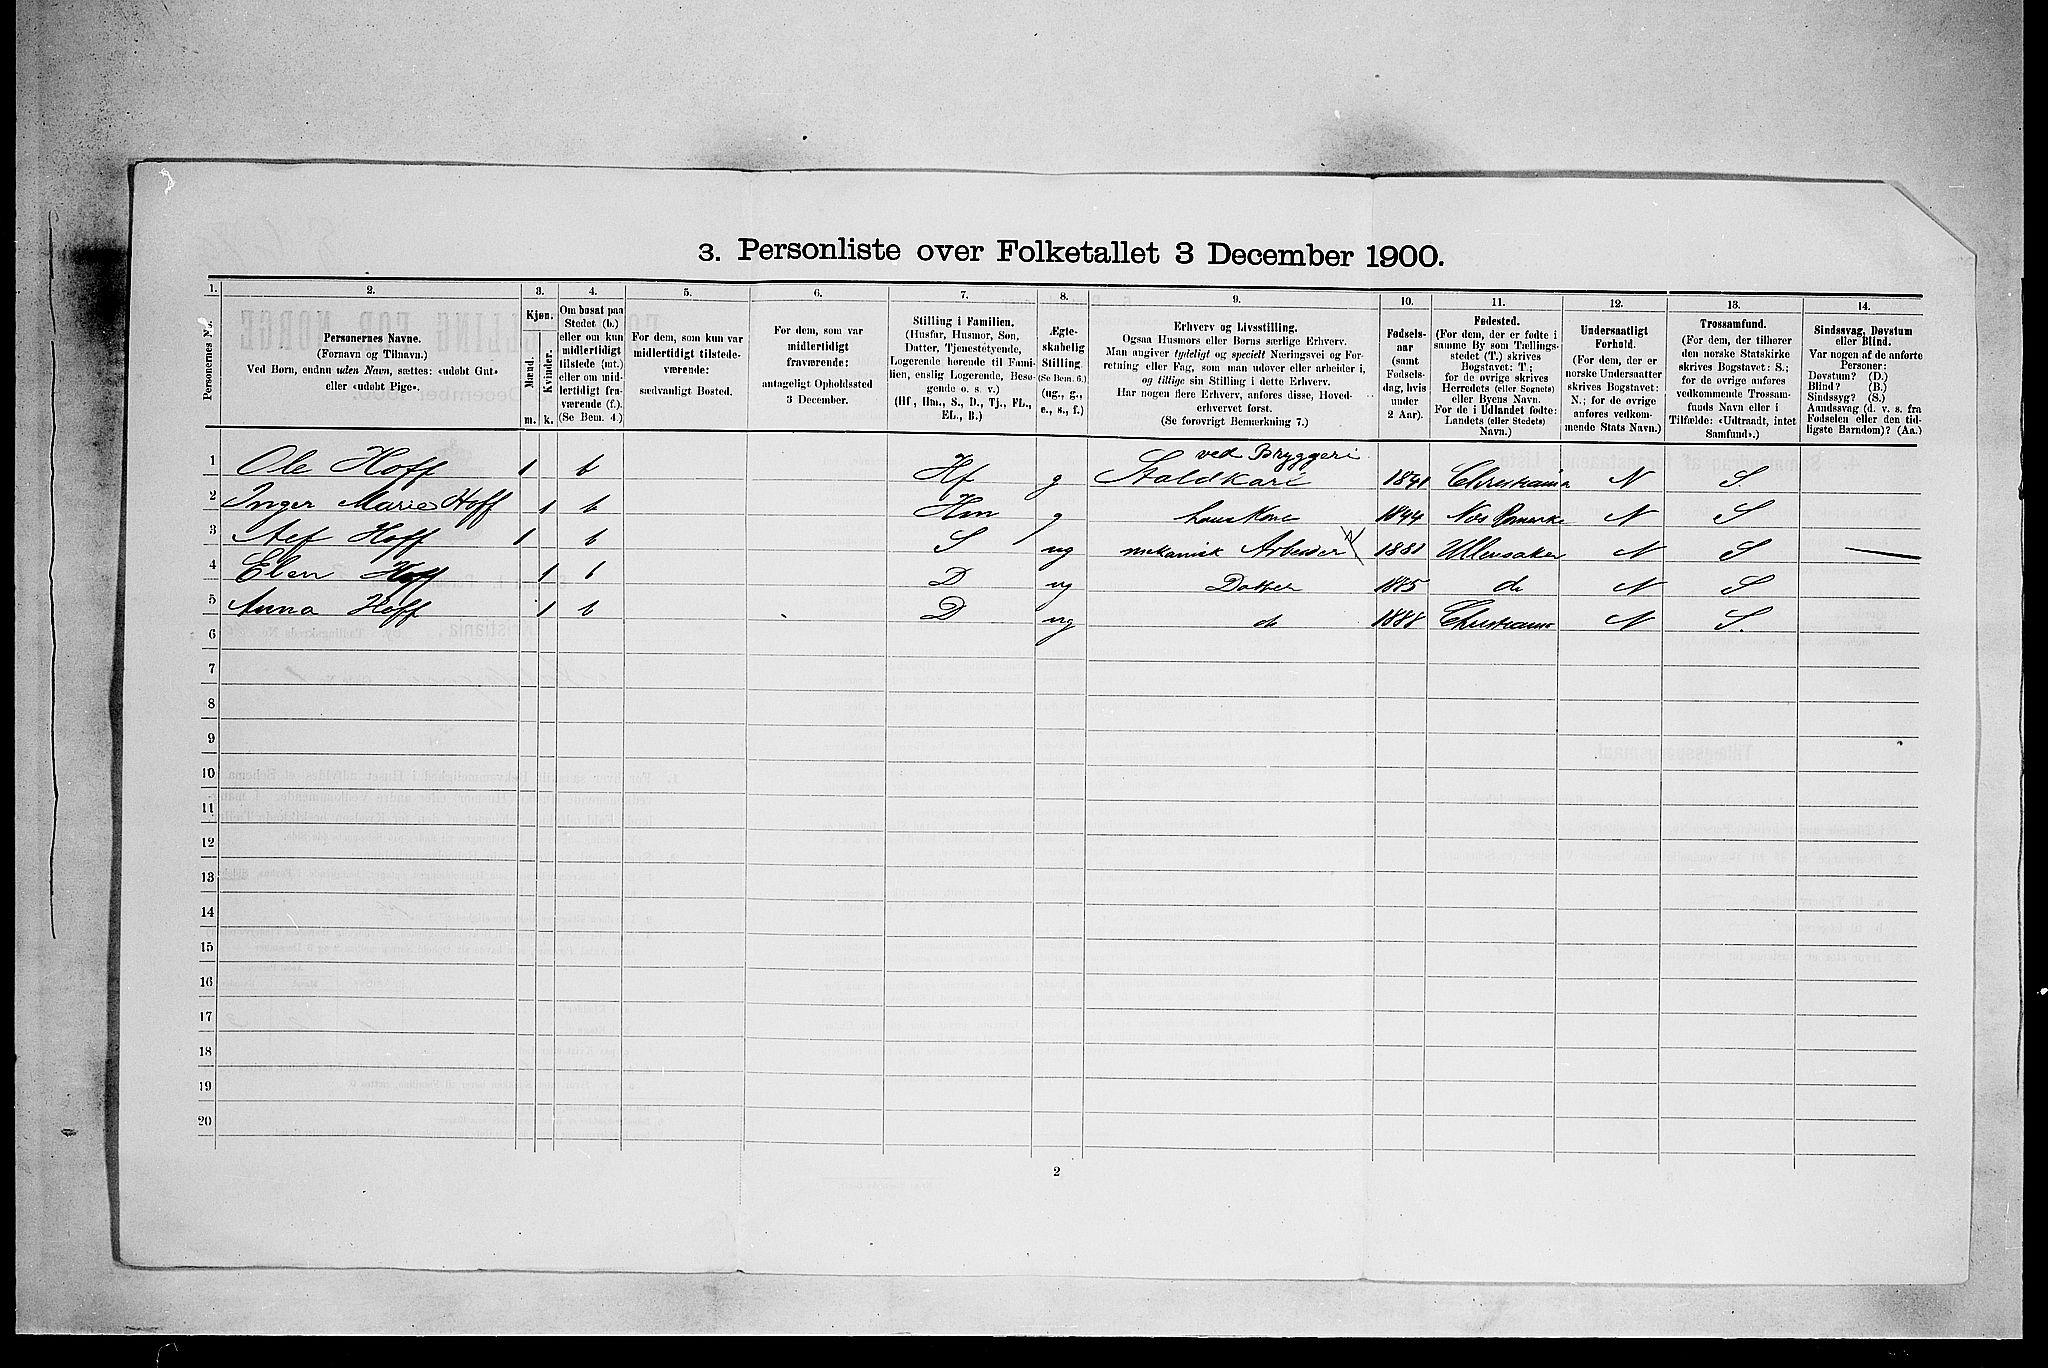 3. Personliste over Folketallet 3 December 1900.
1. 2. 3. 4. 5. 6. 7. 8. 9. 10. 11. 12. 13. 14.
Personernes No.
Personernes Navne.
(Fornavn og Tilnavn.)
Ved Børn, endnu uden Navn, sættes: «udøbt Gut»
eller «udøbt Pige».
Kjøn.
Mænd.
Kvinder.
m. k.
Om bosat paa
Stedet (b.)
eller om kun
midlertidigt
tilstede (mt.)
eller om mid-
lertidigt fra-
værende (f.).
(Se Bem. 4.)
For dem, som kun var
midlertidigt tilstede-
værende:
sædvanligt Bosted.
For dem, som var
midlertidigt
fraværende:
antageligt Opholdssted
3 December.
Stilling i Familien.
(Husfar, Husmor, Søn,
Datter, Tjenestetyende,
Logerende hørende til Fami-
lien, enslig Logerende, Besø-
gende o. s. v.)
(Hf, Hm., S., D., Tj., FL.,
EL., B.)
Ægte-
skabelig
Stilling.
(Se Bem. 6.)
(ug., g.,
e., s., f.)
Erhverv og Livsstilling.
Ogsaa Husmors eller Børns særlige Erhverv.
Man angiver tydeligt og specielt Næringsvei og For-
retning eller Fag, som man udøver eller arbeider i,
og tillige sin Stilling i dette Erhverv.
Har nogen flere Erhverv, anføres disse, Hoved-
erhvervet først.
(Se forøvrigt Bemerkning 7.)
Fødsels-
aar
(samt
Fødsels-
dag, hvis
under
2 Aar).
Fødested.
(For dem, der er fødte i
samme By som Tællings-
stedet (T.) skrives
Bogstavet: T.;
for de øvrige skrives
Herredets (eller Sognets)
eller Byens Navn.
For de i Udlandet fødte:
Landets (eller Stedets)
Navn.)
Undersaatligt
Forhold.
(For dem, der er
norske Undersaatter
skrives Bogstavet:
N.; for de øvrige
anføres vedkom-
mende Stats Navn.)
Trossamfund.
(For dem, der tilhører
den norske Statskirke
skrives Bogstavet: S.;
for de øvrige anføres
vedkommende Trossam-
funds Navn eller i
Tilfælde: «Udtraadt, intet
Samfund».)
Sindssvag, Døvstum
eller Blind.
Var nogen af de anførte
Personer:
Døvstum? (D.)
Blind? (B.)
Sindssyg? (S.)
Aandssvag (d. v. s. fra
Fødselen eller den tid-
ligste Barndom)? (Aa.)
ved Bryggeri
1 Ole Hoff 1 b Hf g Staldkarl 1841 Christiania N S.
2 Inger Marie Hoff 1 b Hm g 1844 N S
3 Hoff 1 b S ug mekanisk Arbeider 1881 Ullensaker N S —
4 Elen Hoff 1 b D ug Datter 1885 do N S
5 Anna Hoff 1 b D ug do 1888 Christiania N S.
6
7
8
9
10
11
12
13
14
15
16
17
18
19
20
2